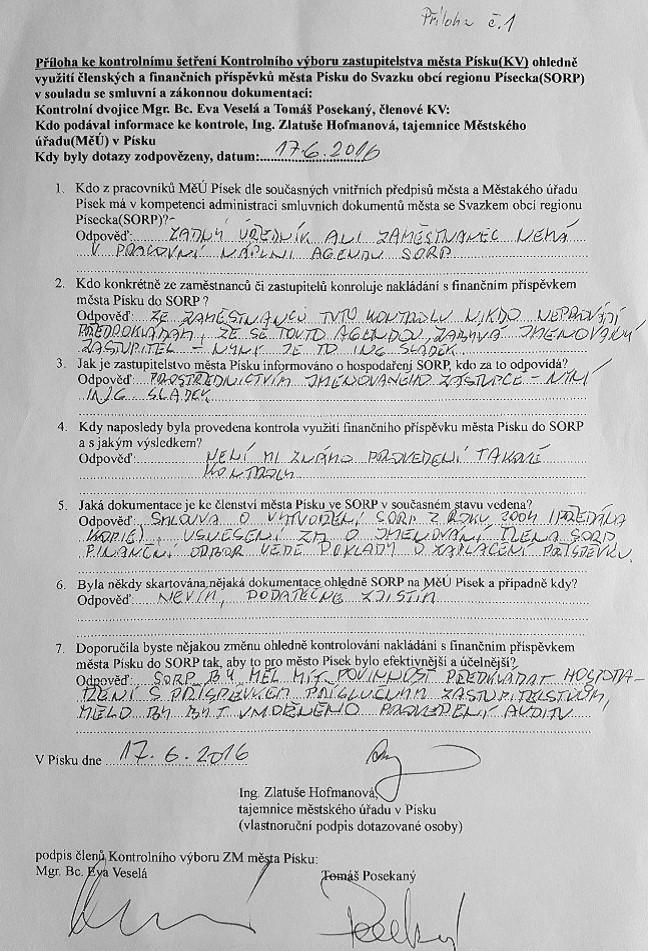 Příloha č.1
Příloha ke kontrolnímu šetření Kontrolního výboru zastupitelstva města Písku(KV) ohledně
využití členských a finančních příspěvků města Písku do Svazku obcí regionu Písecka(SORP)
v souladu se smluvní a zákonnou dokumentací:
Kontrolní dvojice Mgr. Bc. Eva Veselá a Tomáš Posekaný, členové KV:
Kdo podával informace ke kontrole, Ing. Zlatuše Hofmanová, tajemnice Městského
úřadu(MěÚ) v Písku
Kdy byly dotazy zodpovězeny, datum: 17.6.2016
1. Kdo z pracovníků MěÚ Písek dle současných vnitřních předpisů města a Městakého úřadu
Písek má v kompetenci administraci smluvních dokumentů města se Svazkem obcí regionu
Písecka(SORP)?
Odpověď: ŽÁDNÝ ÚŘEDNÍK ANI ZAMĚSTNANEC NEMÁ
V PRACOVNÍ NÁPLNI AGENDU SORP
2. Kdo konkrétně ze zaměstnanců či zastupitelů konroluje nakládání s finančním příspěvkem
města Písku do SORP ?
Odpověď: ZE ZAMĚSTNANCŮ TUTO KONTROLU NIKDO NEPROVÁDÍ
PŘEDPOKLÁDÁM, ŽE SE TOUTO AGENDOU ZABÝVÁ JMENOVANÝ
ZASTUPITEL - NYNÍ JE TO ING SLÁDEK
3. Jak je zastupitelstvo města Písku informováno o hospodaření SORP, kdo za to odpovídá?
Odpověď: PROSTŘEDNICTVÍM JMENOVANÉHO ZÁSTUPCE - NYNÍ
ING SLÁDEK
4. Kdy naposledy byla provedena kontrola využití finančního příspěvku města Písku do SORP
a s jakým výsledkem?
Odpověď: NENÍ MI ZNÁMO PROVEDENÍ TAKOVÉ
KONTROLY
5. Jaká dokumentace je ke členství města Písku ve SORP v současném stavu vedena?
Odpověď: SMLOUVA O VYTVOŘENÍ SORP Z ROKU 2004 (PŘEDÁNA
KOPIE), USNESENÍ ZM O JMENOVÁNÍ ČLENA SORP
FINANČNÍ ODBOR VEDE DOKLADY O ZAPLACENÍ PŘÍSPĚVKU
6. Byla někdy skartována nějaká dokumentace ohledně SORP na MěÚ Písek a případně kdy?
Odpověď: NEVÍM, DODATEČNĚ ZJISTÍM
7. Doporučila byste nějakou změnu ohledně kontrolování nakládání s finančním příspěvkem
města Písku do SORP tak, aby to pro město Písek bylo efektivnější a účelnější?
Odpověď: SORP BY MĚL MÍT POVINNOST PŘEDKLÁDAT HOSPODA-
ŘENÍ S PŘÍSPĚVKEM PŘÍSLUČNÝM ZASTUPITELSTVŮM,
MĚLO BY BÝT UMOŽNĚNO PROVEDENÍ AUDITU
V Písku dne 17.6.2016
Ing. Zlatuše Hofmanová,
tajemnice městského úřadu v Písku
(vlastnoruční podpis dotazované osoby)
podpis členů Kontrolního výboru ZM města Písku:
Mgr. Bc. Eva Veselá Tomáš Posekaný